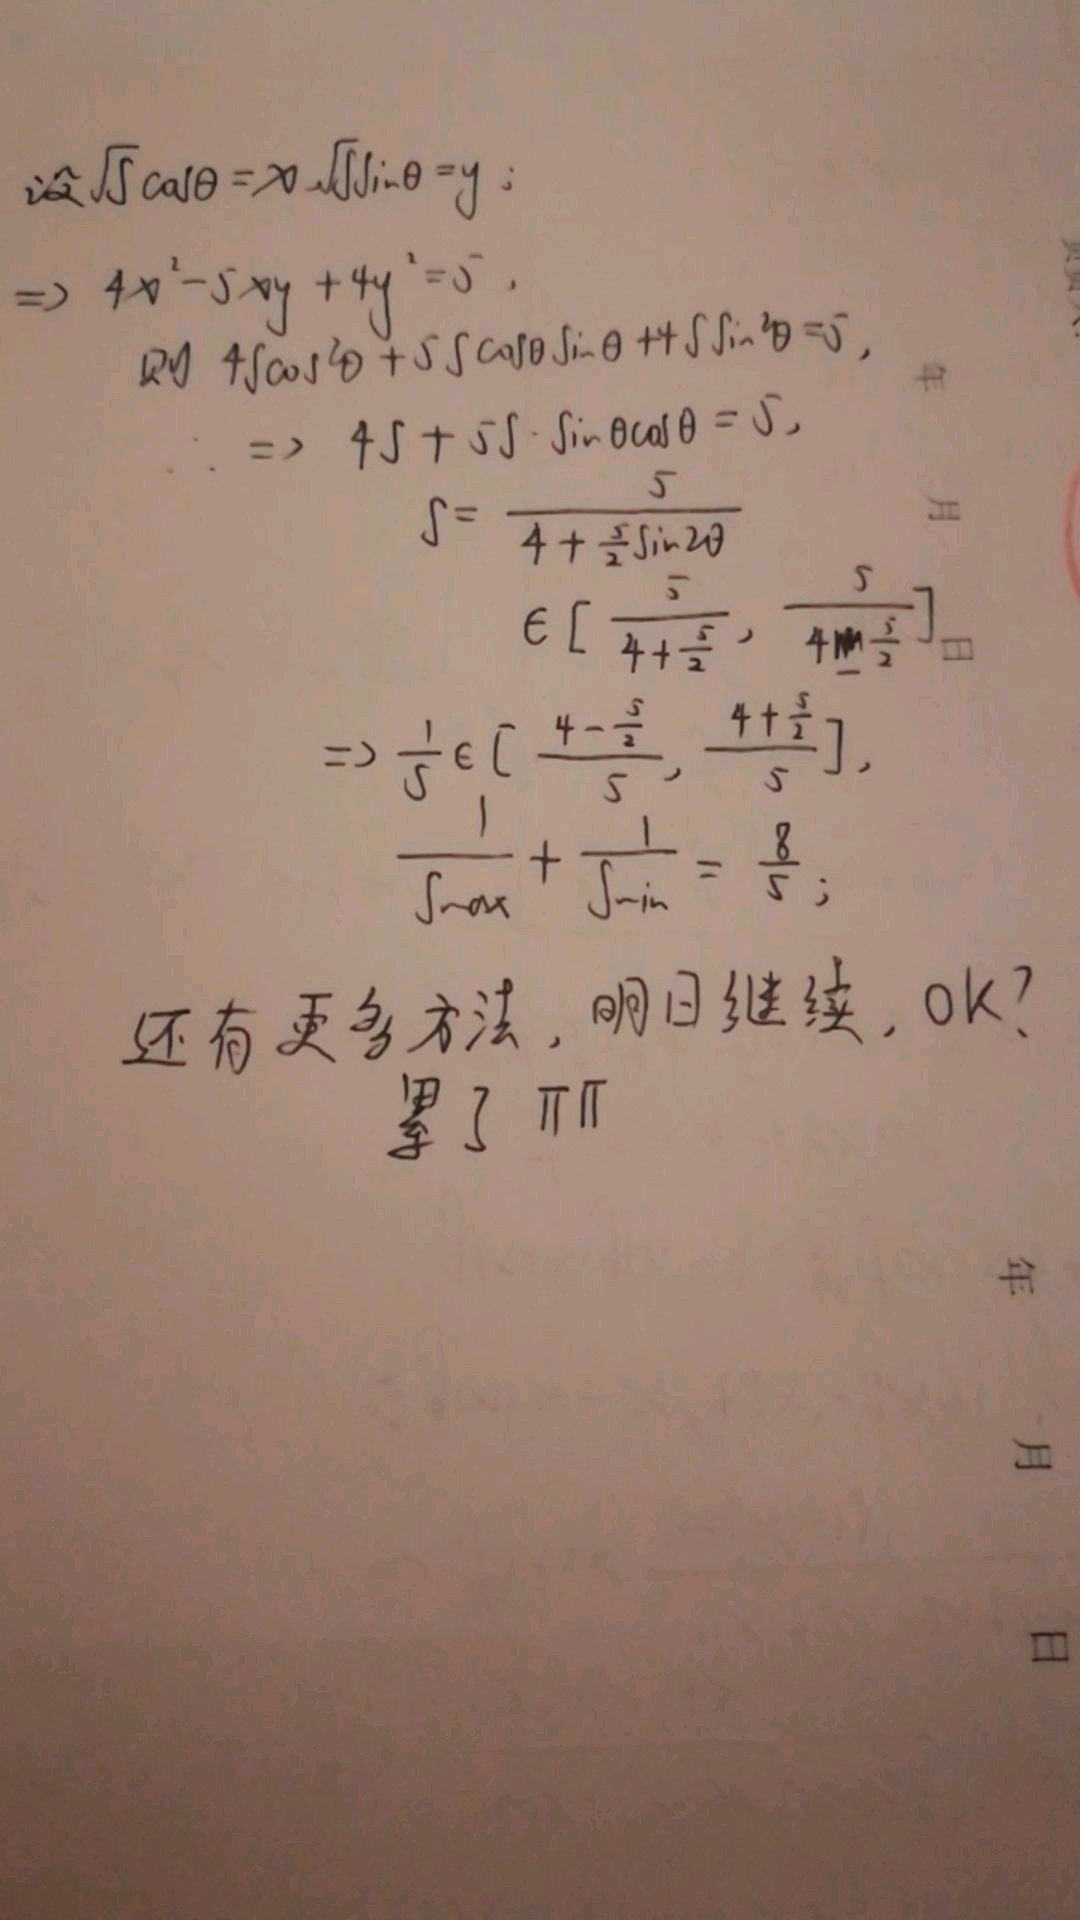 设√S cosθ=x √S sinθ=y;
=> 4x²-5xy+4y²=5,
则 4Scos²θ+5S cosθ sinθ+4S sin²θ=5,
∴ => 4S+5S·sinθcosθ=5,
S= 5/(4+5/2 sin2θ)
∈[5/(4+5/2), 5/(4-5/2)]
=> 1/S∈[(4-5/2)/5, (4+5/2)/5],
1/Smax + 1/Smin = 8/5;
还有更多方法,明日继续,OK?
累了 ΠΠ
年
月
日
年
月
日